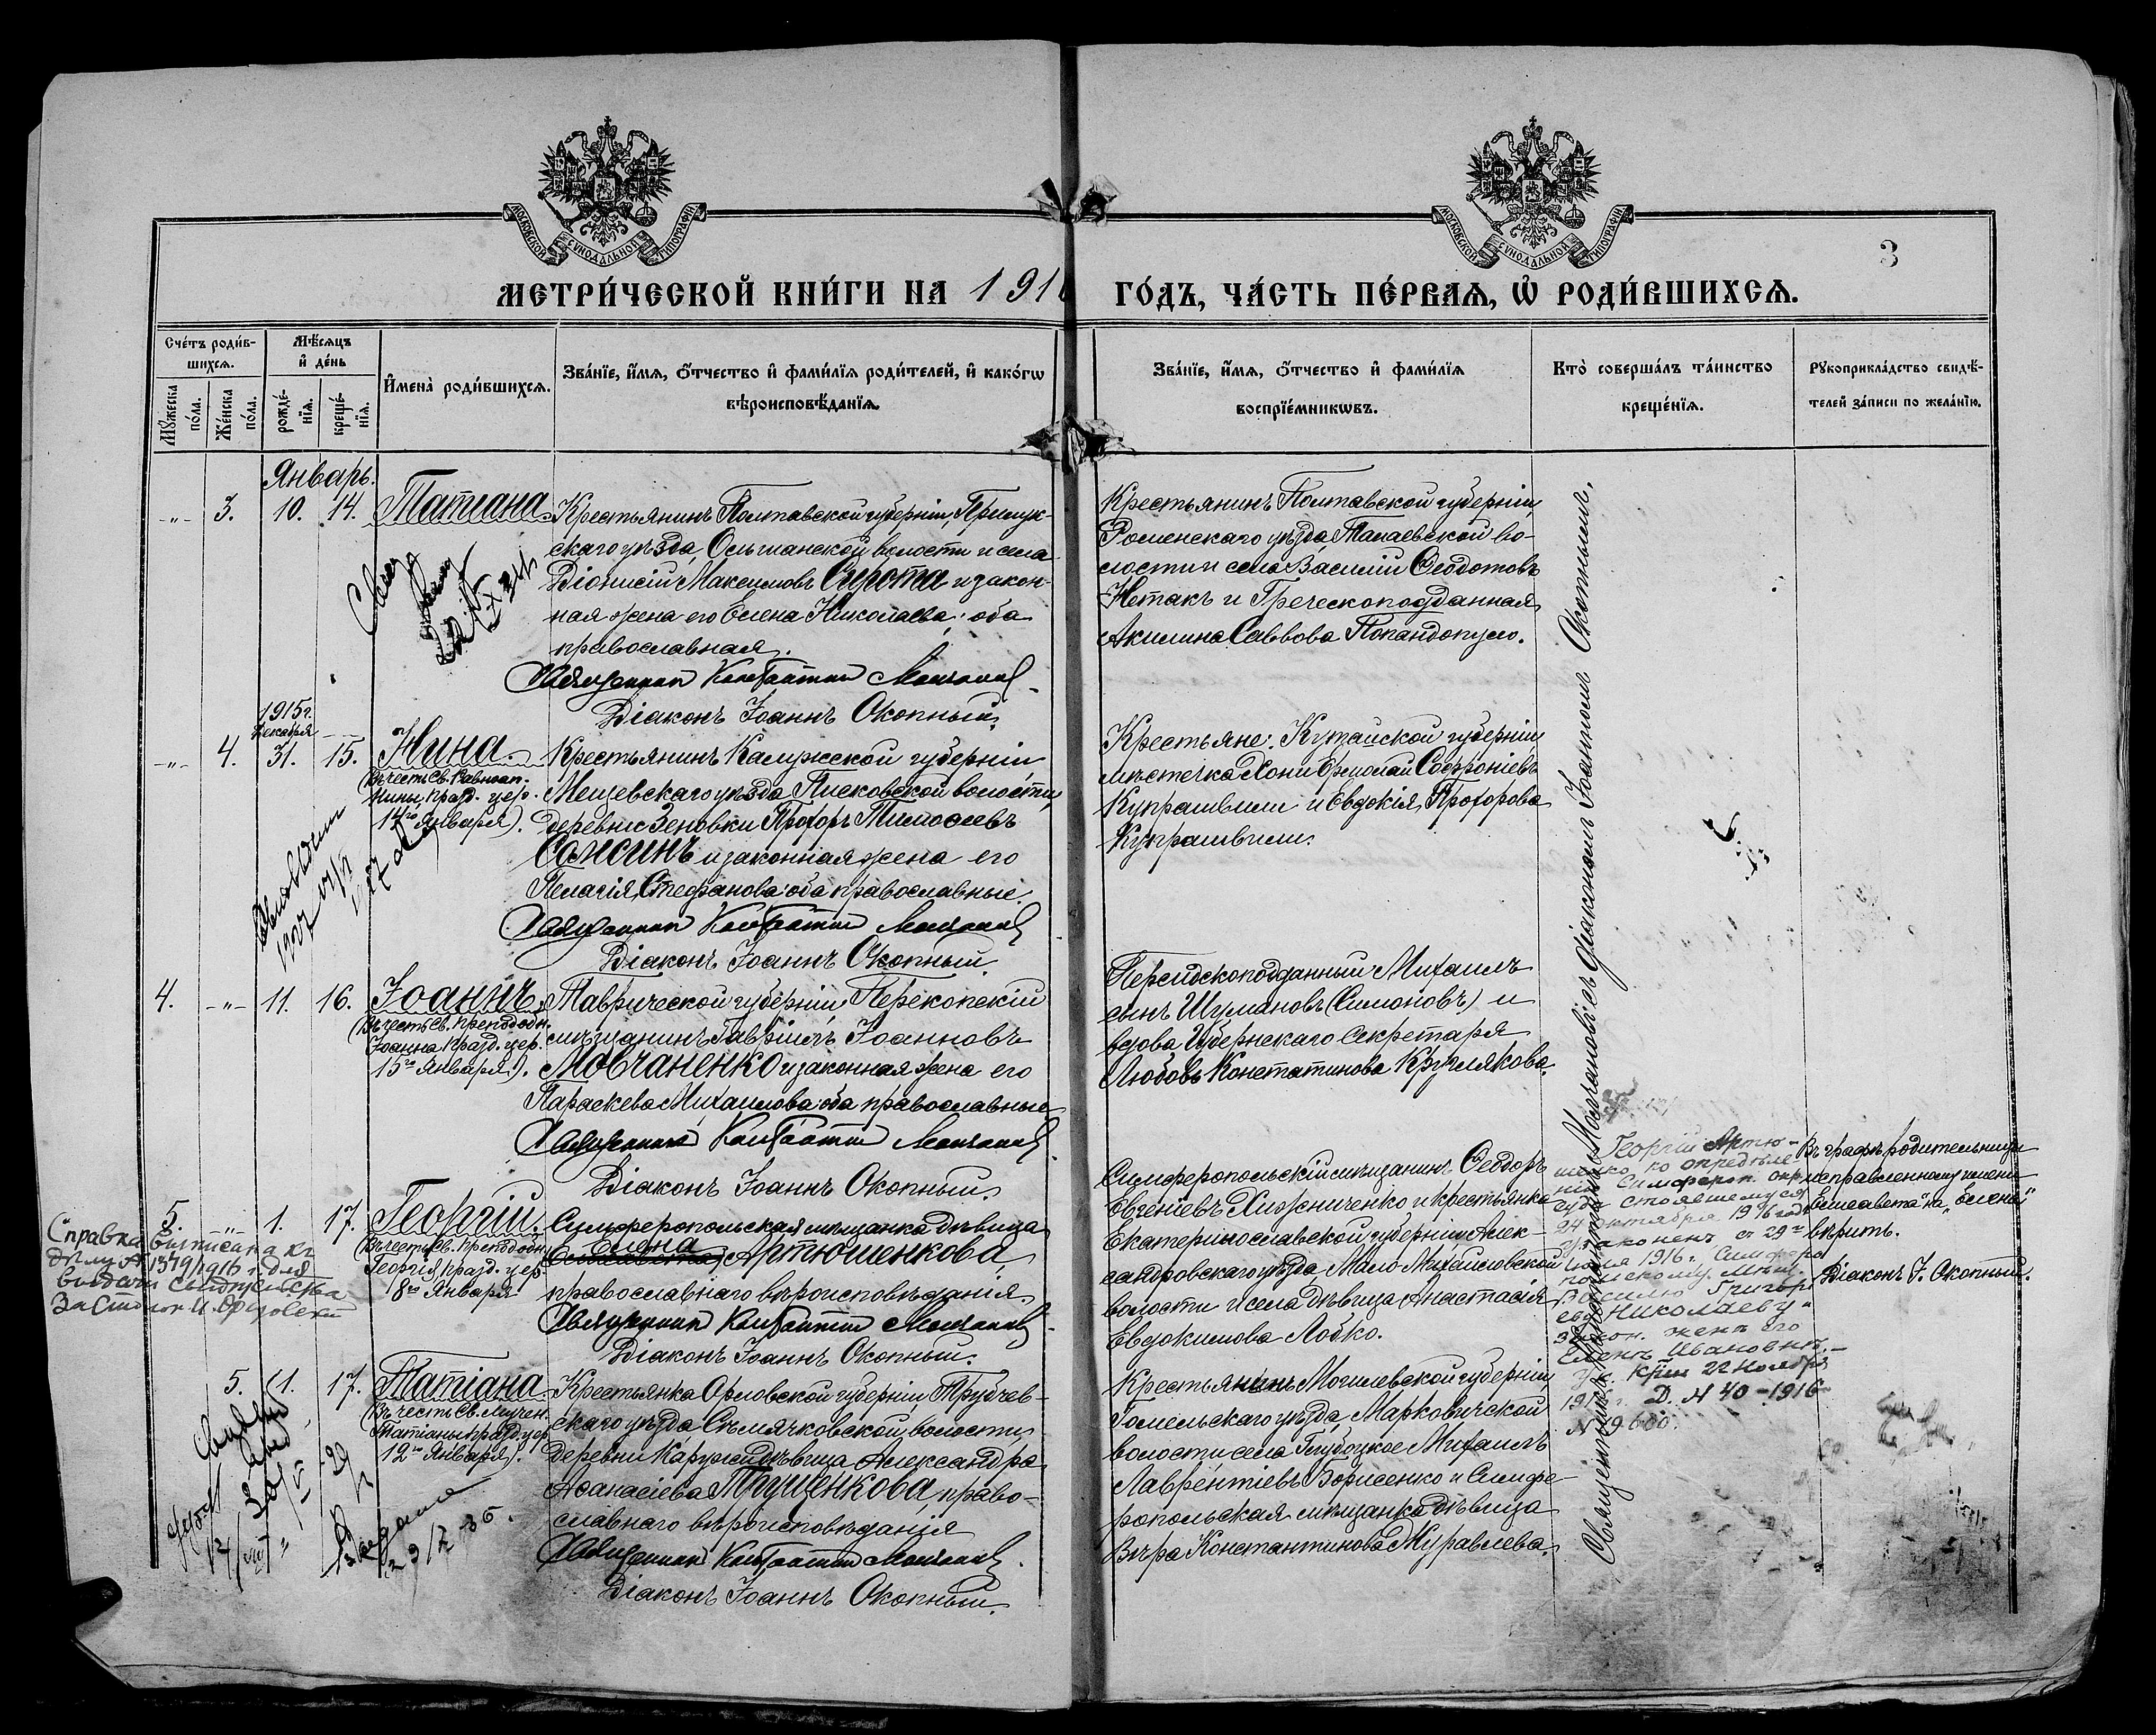 МОСКОВСКОЙ СѴНОДАЛЬНОЙ ТИПОГРАФІИ
МОСКОВСКОЙ СѴНОДАЛЬНОЙ ТИПОГРАФІИ
3
МЕТРИ́ЧЕСКОЙ КНИ́ГИ НА 191
ГО́ДЪ, ЧА́СТЬ ПЕ́РВАѦ, Ѡ҆ РОДИ́ВШИХСѦ.
Сче́тъ роди́в-
шихсѧ.
Мѣ́сѧцъ
и҆ де́нь
Мꙋ́жеска
по́ла.
Же́нска
по́ла.
рожде́-
нїѧ.
креще́-
нїѧ.
И҆мена̀ роди́вшихсѧ.
Зва́нїе, и҆́мѧ, ѻ҆́тчество и҆ фами́лїѧ роди́телей, и҆ како́гѡ
вѣроисповѣ́данїѧ.
Зва́нїе, и҆́мѧ, ѻ҆́тчество и҆ фами́лїѧ
воспрїе́мникѡвъ.
Кто̀ соверша́лъ та́инство
креще́нїѧ.
Рꙋкоприкла́дство свидѣ́-
телей за́писи по жела́нїю.
Январь.
-"- 3. 10. 14. Татіана
Крестьянинъ Полтавской губерніи, Прилук-
скаго уѣзда, Ольшанской волости и села
Діонисій Максимовъ Сирота и закон-
ная жена его Елена Николаева; оба
православная.
Священник Константин Молчанов
Діаконъ Іоаннъ Окопный.
Крестьянинъ Полтавской губерніи,
Роменскаго уѣзда, Талаевской во-
лости и села Василій Ѳеодотовъ
Нетакъ и Греческоподданная
Акилина Саввова Попандопуло.
1915 г.
Декабря
-"- 4. 31. 15. Нина.
(Въ честь Св. Равноап.
Нины, празд. цер.
14го Января).
Крестьянинъ Калужской губерніи,
Мещевскаго уѣзда, волости,
деревни Зеновки Прохоръ Тимоѳеевъ
Сомсинъ и законная жена его
Пелагія Стефанова оба православные.
Священник Константин Молчанов
Діаконъ Іоаннъ Окопный.
Крестьяне: Кутаисской губерніи,
мѣстечка Хони Ермолай Софроніевъ
Купрашвили и Евдокія Прохорова
Купрашвили.
4. -"- 11. 16. Іоаннъ.
(Въ честь Св. Преподобн.
Іоанна празд. цер.
15го Января).
Таврической губерніи Перекопскій
мѣщанинъ Гавріилъ Іоанновъ
Мовчаненко и законная жена его
Параскева Михаилова оба православные
Священник Константин Молчанов
Діаконъ Іоаннъ Окопный.
Персидскоподданный Михаилъ
сынъ Шумановъ (Симоновъ) и
вдова Губернскаго Секретаря
Любовь Константинова Круглякова.
5. -"- 1. 17. Георгій.
(Въ честь Св. Преподобн.
Георгія празд. цер.
8го Января
Симферопольская мѣщанка дѣвица
Елена
Елисавета Артюшенкова,
православнаго вѣроисповѣданія.
Священник Константин Молчанов
Діаконъ Іоаннъ Окопный.
Симферопольскій мѣщанинъ Ѳеодоръ
Евгеніевъ Хижниченко и крестьянка
Екатеринославской губерніи, Алек-
сандровскаго уѣзда, Мало-Михайловской
волости и села дѣвица Анастасія
Евдокимова Лобко.
Георгій Артю-
шенко, по опредѣле-
нію Симфероп. окр.
суда, стоявшемуся
24 октября 1916 года
узаконенъ с 29го
1916 г. Симферо-
польскому мѣщ.
Василію Григорь-
еву Николаеву и
закон. женѣ его
Еленѣ Ивановнѣ.
22 Ноября
1916 г. Д. № 40-1916
№ 19600.
Въ графѣ родительницы
исправленному имени
"Елисавета" на "Елена"
вѣрить.
Діаконъ І. Окопный.
Справка выписана къ
дѣлу № 1379/1916 г. для
5. 11. 17. Татіана.
(Въ честь Св. Мучен.
Татіаны празд. цер.
12го Января).
Крестьянка Орловской губерніи, Трубчев-
скаго уѣзда, Семячковской волости,
деревни Каружи дѣвица Александра
Аѳанасіева Трушенкова, право-
славнаго вѣроисповѣданія
Священник Константин Молчанов.
Діаконъ Іоаннъ Окопный.
Крестьянинъ Могилевской губерніи,
Гомельскаго уѣзда, Марковичской
волости села Глубоцкое Михаилъ
Лаврентіевъ Борисенко и Симфе-
ропольская мѣщанка дѣвица
Вѣра Константинова Журавлева.
Священникъ Константинъ Молчановъ съ діакономъ Іоанномъ Окопнымъ.